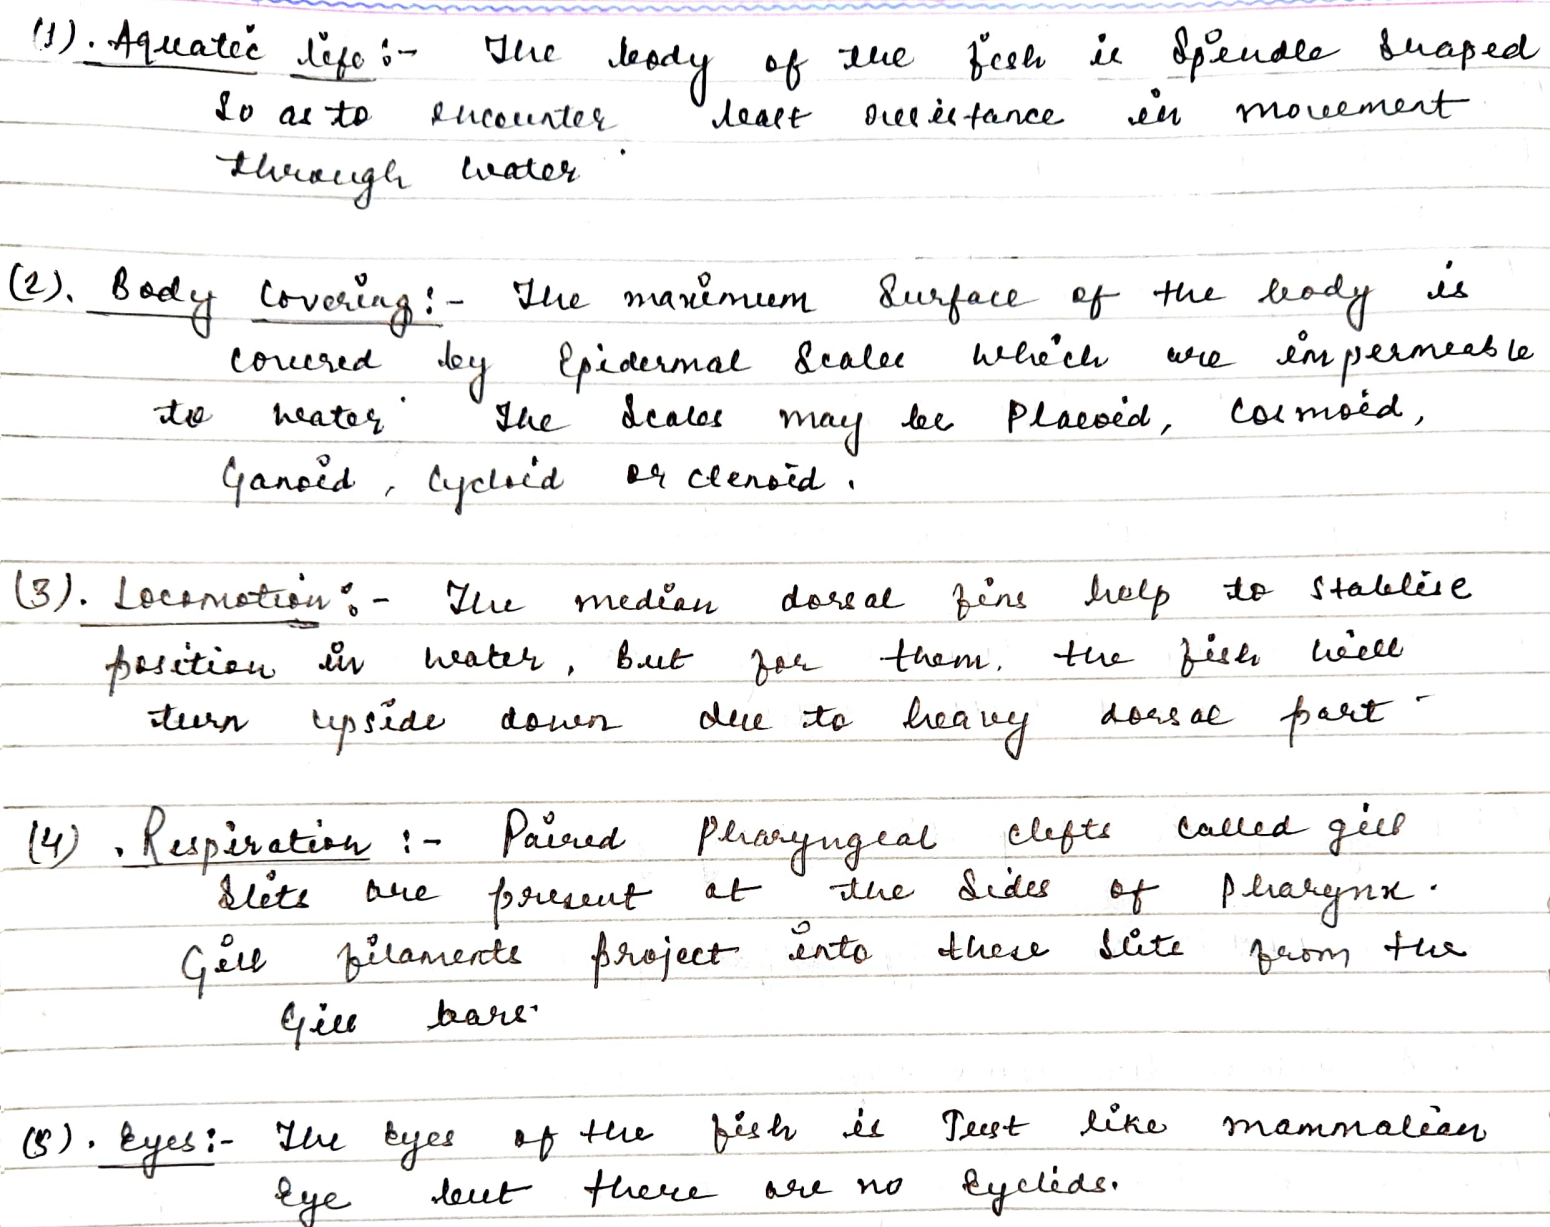 (1). Aquatic life :- The body of the fish is Spindle Shaped
So as to encounter least resistance in movement
through water.
(2). Body Covering :- The maximum Surface of the body is
covered by Epidermal Scales which are impermeable
to water. The Scales may be Placoid, Cosmoid,
Ganoid, Cycloid or ctenoid.
(3). Locomotion :- The median dorsal fins help to Stablise
position in water, But for them. the fish will
turn upside down due to heavy dorsal part -
(4). Respiration :- Paired Pharyngeal clefts Called gill
Slits are present at the Sides of Pharynx.
Gill filaments project into these Slits from the
Gill bars.
(5). Eyes :- The Eyes of the fish is Just like mammalian
Eye but there are no Eyelids.